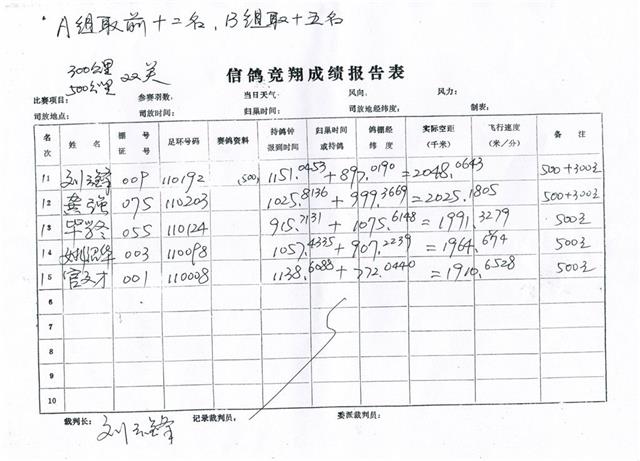 A组取前十二名，B组取十五名
300公里
500公里 双关
信鸽竞翔成绩报告表
比赛项目： 参赛羽数： 当日天气： 风向： 风力：
司放地点： 司放时间： 归巢时间： 司放地经纬度： 制表：
名次 姓名 棚号证号 足环号码 赛鸽资料 持鸽钟报到时间 归巢时间或持鸽 鸽棚经纬度 实际空距（千米） 飞行速度（米／分） 备注
11 刘 009 110192 (500) 1151.0453 + 897.0190 = 2048.0643 500+300元
12 龚强 075 110203 1025.8136 + 999.3669 = 2025.1805 500+300元
13 毕 055 110124 915.7131 + 1075.6148 = 1991.3279 500元
14 003 110098 1057.4335 + 907.2239 = 1964.6574 500元
15 官文才 001 110008 1138.6088 + 772.0440 = 1910.6528 500元
6
7
8
9
10
裁判长： 刘 记录裁判员： 委派裁判员：